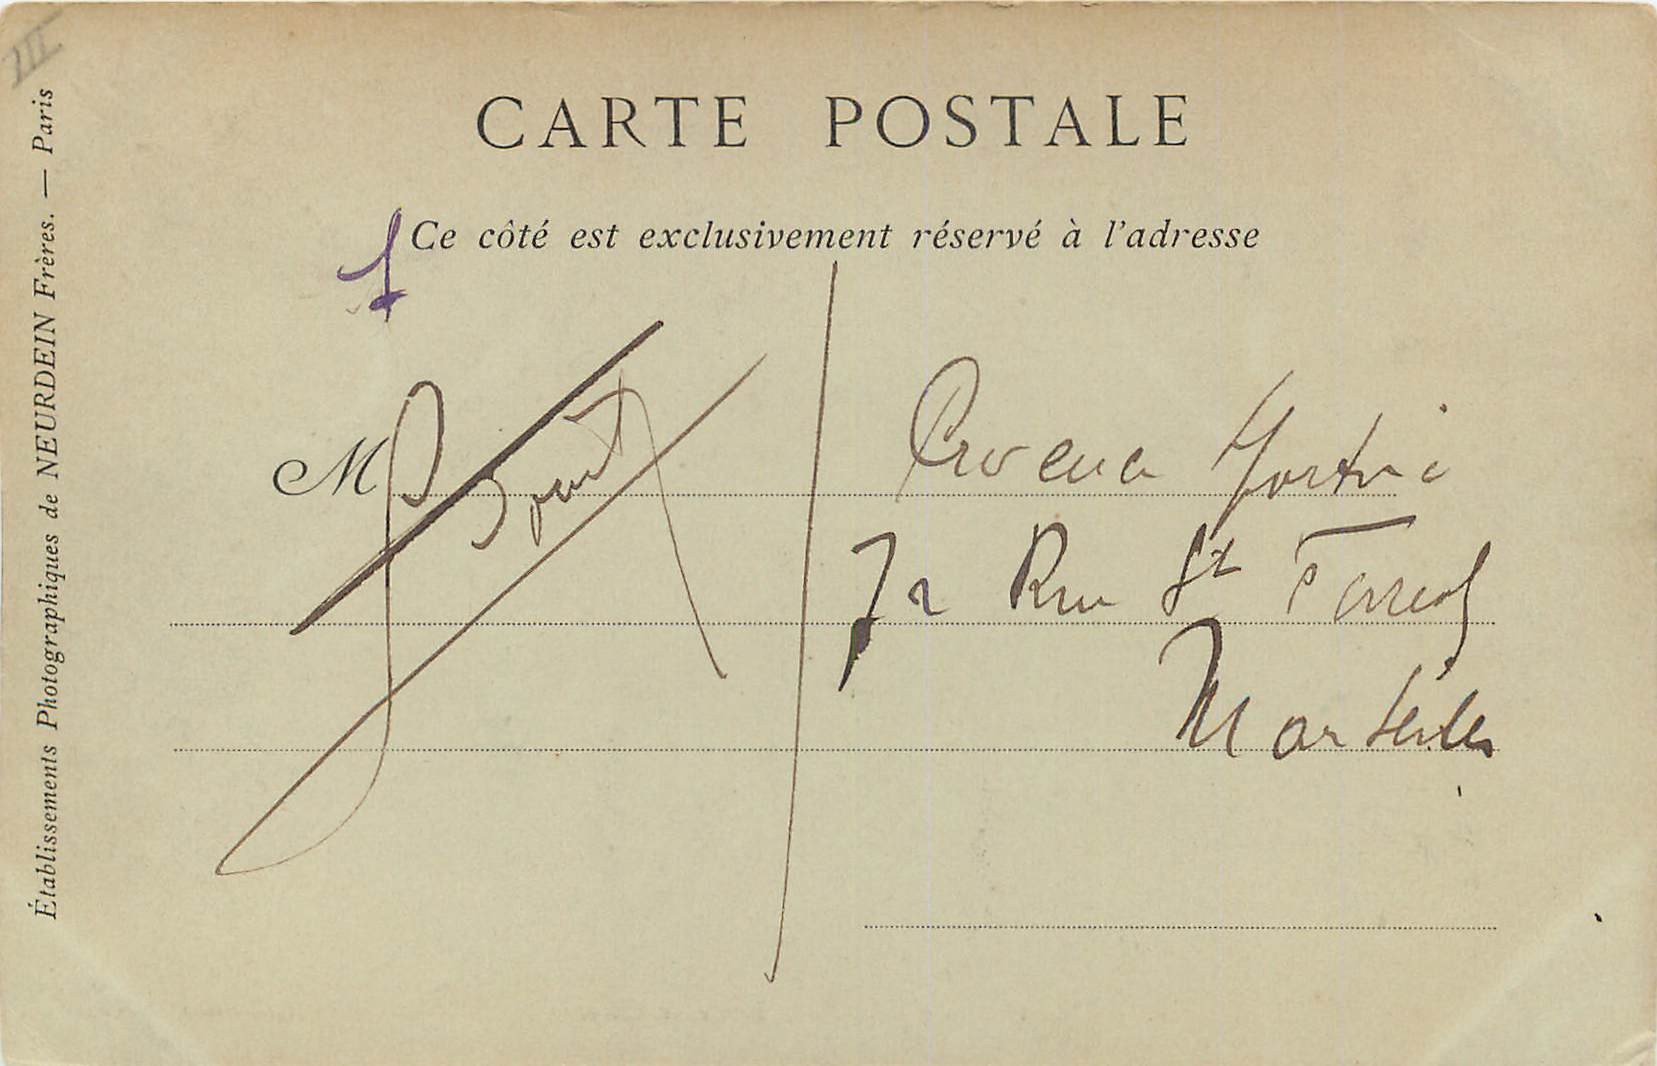 III
CARTE POSTALE
Ce côté est exclusivement réservé à l'adresse
M
72 Rue St Ferreol
Marseille
Établissements Photographiques de NEURDEIN Frères. — Paris